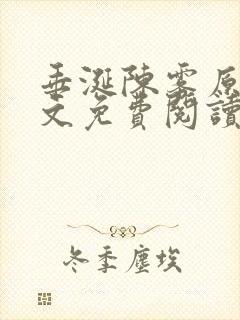 垂涎陳霧原
文免費閱讀
冬季塵埃